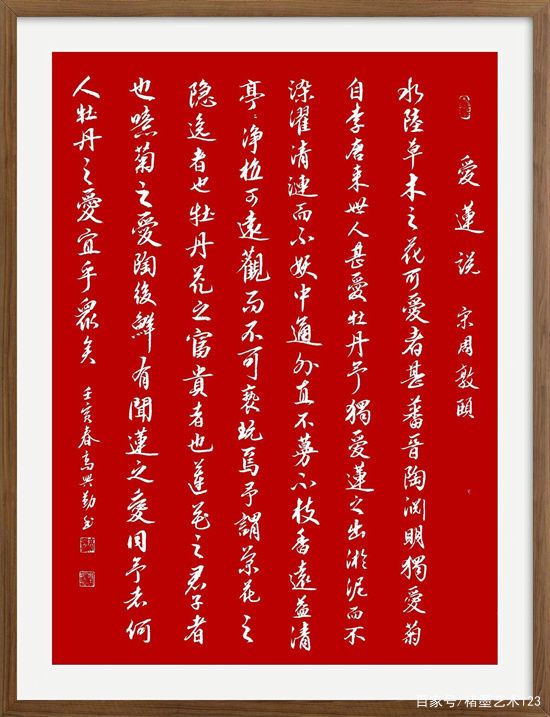 愛蓮説 宋周敦頤
水陸草木之花可愛者甚蕃晉陶渊明獨愛菊
自李唐来世人甚愛牡丹予獨愛蓮之出淤泥而不
染濯清漣而不妖中通外直不蔓不枝香遠益清
亭〻净植可遠觀而不可亵玩焉予謂菊花之
隐逸者也牡丹花之富貴者也蓮花之君子者
也噫菊之愛陶後鮮有聞蓮之愛同予者何
人牡丹之愛宜乎眾矣 壬寅春高兴勤书
百家号/楮墨艺术123